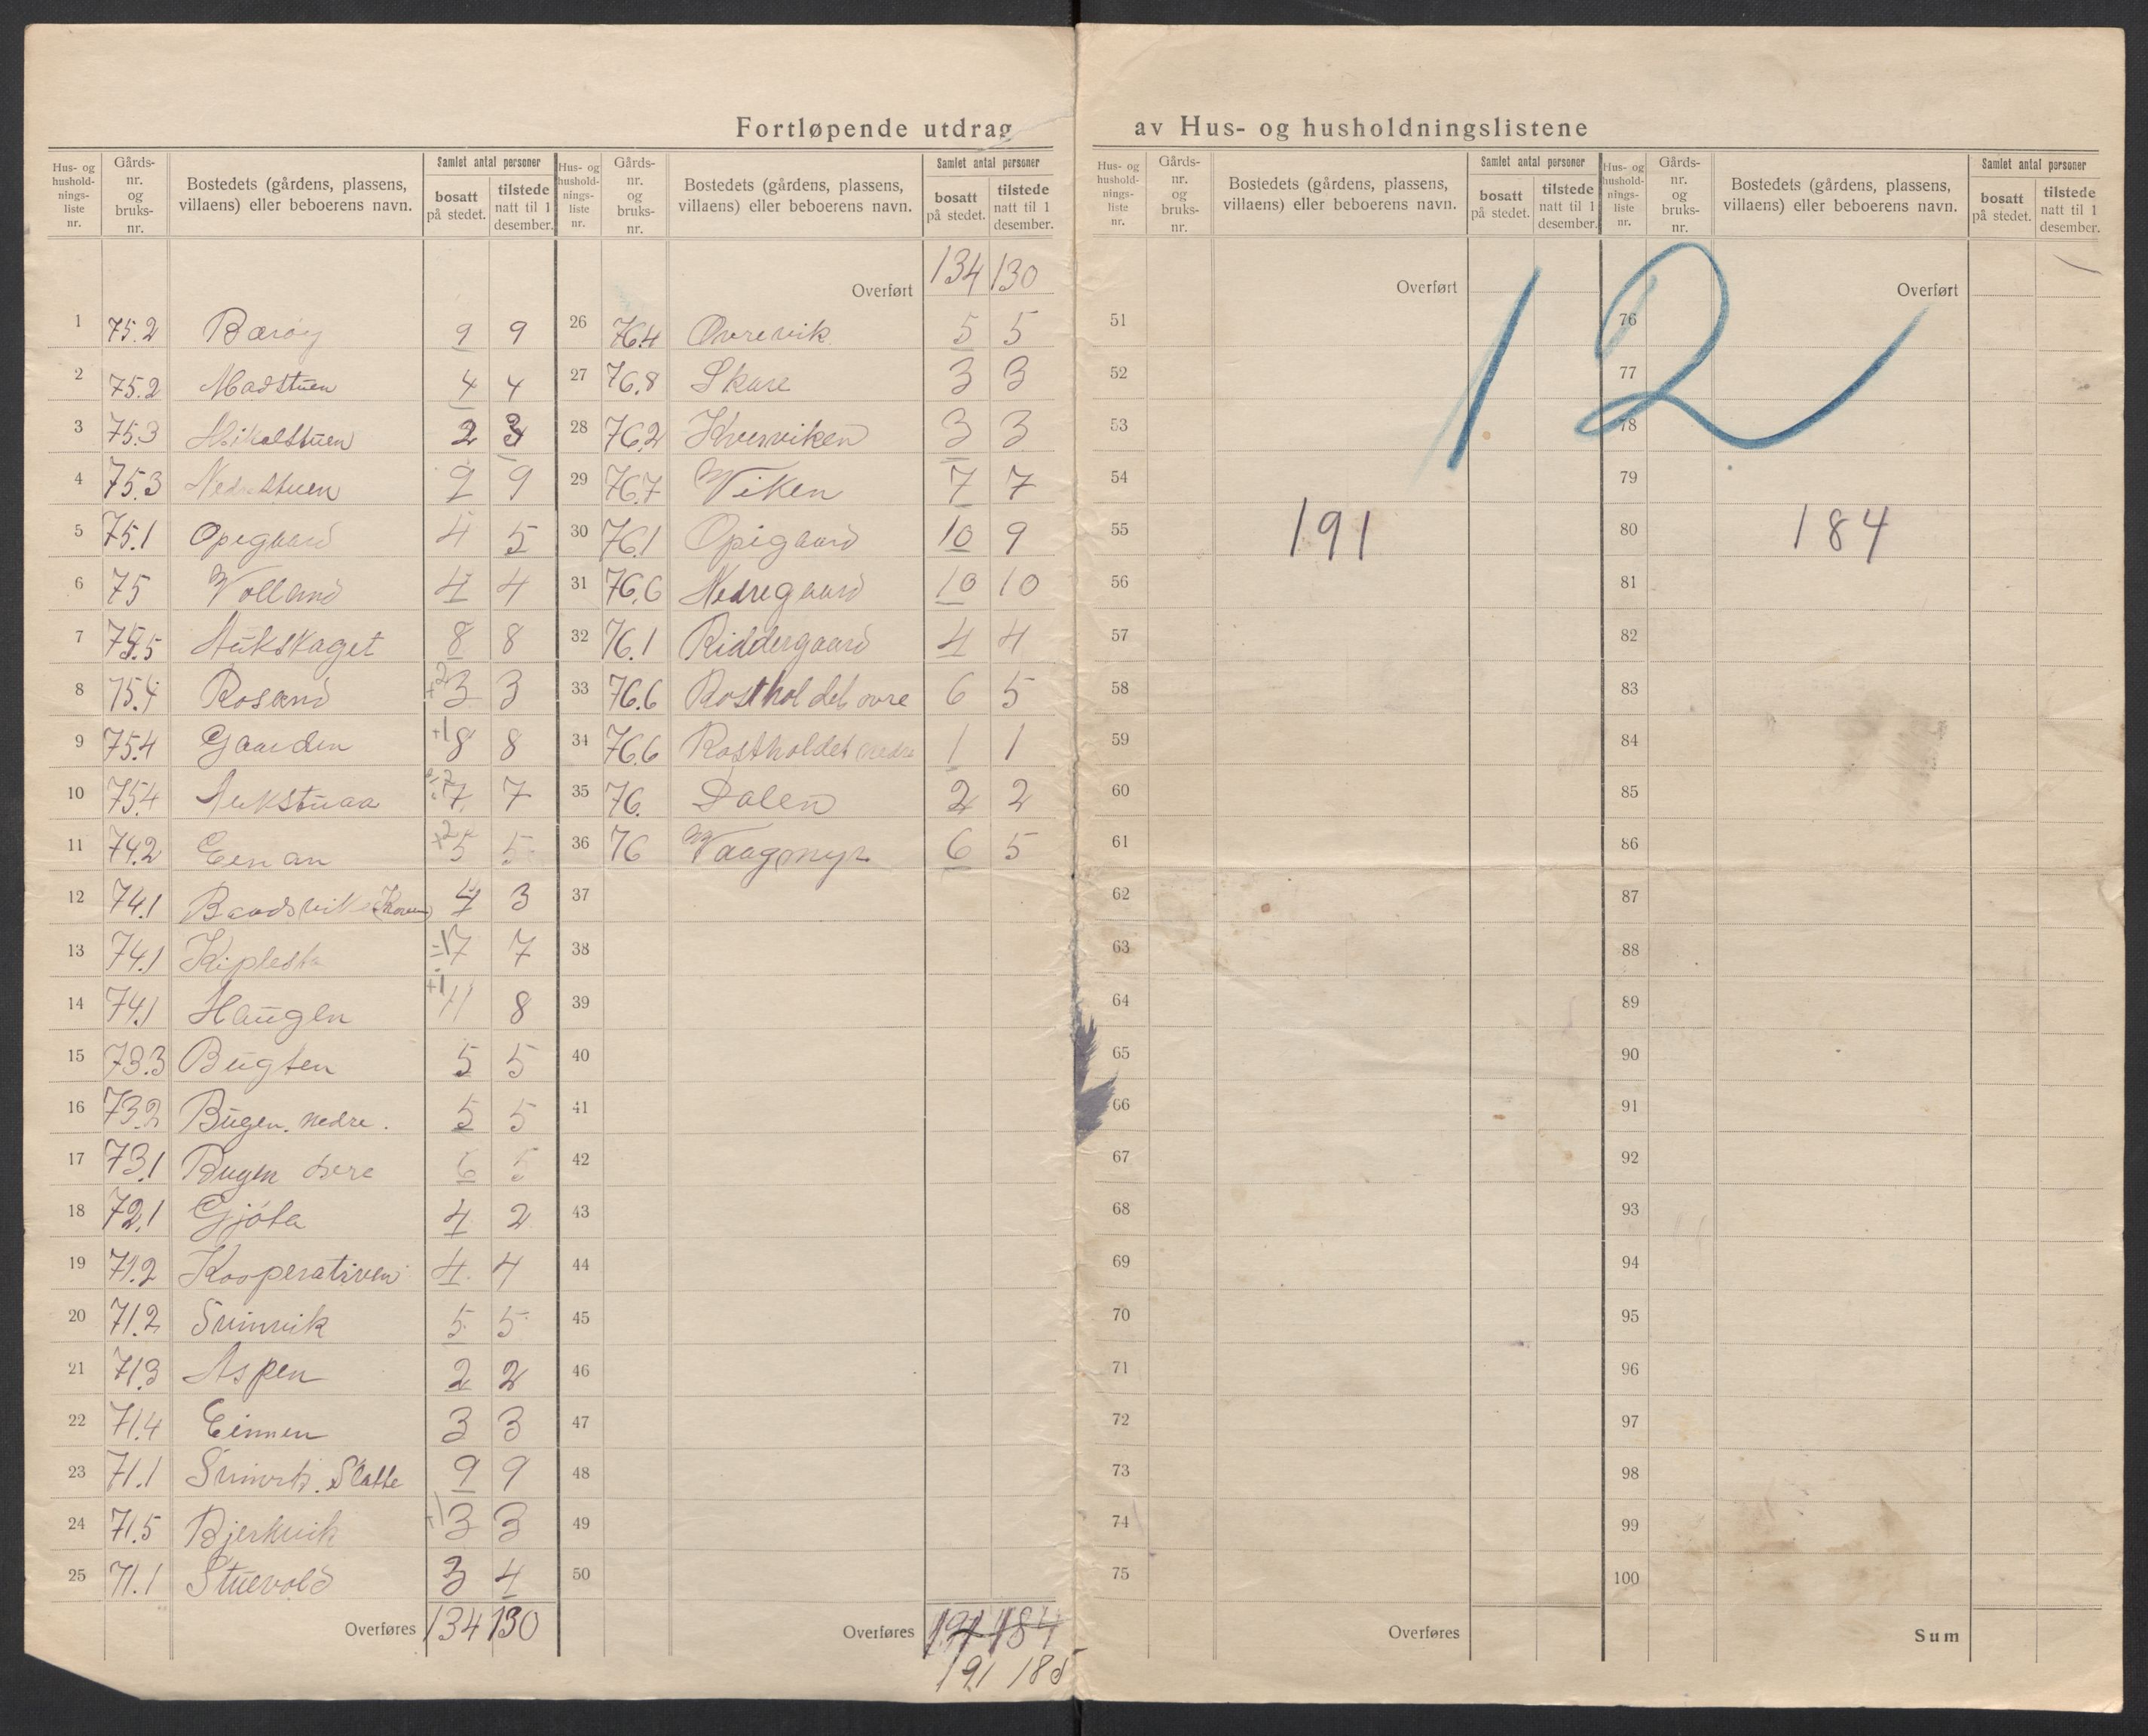 Fortløpende utdrag av Hus- og husholdningslistene
Hus- og hushold-nings-liste nr. Gårds-nr. og bruks-nr. Bostedets (gårdens, plassens, villaens) eller beboerens navn. Samlet antal personer bosatt på stedet. tilstede natt til 1 desember.
1 75.2 Barøy 9 9
2 75.2 Madstuen 4 4
3 75.3 Mikalstuen 2 3
4 75.3 Nedrestuen 9 9
5 75.1 Opegaard 4 5
6 75 Volland 4 4
7 75.5 Aukskaget 8 8
8 75.4 Rosand +2 3 3
9 75.4 Gaarden +1 8 8
10 75.4 Aukstuaa 7 7
11 74.2 Eenan +2 5 5
12 74.1 Baadsvik 4 3
13 74.1 Kiplesta 7 7
14 74.1 Haugen +1 11 8
15 73.3 Bugten 5 5
16 73.2 Bugen. nedre. 5 5
17 73.1 Bugen 6 5
18 72.1 Gjöta 4 2
19 71.2 Kooperativen 4 4
20 71.2 Svinvik 5 5
21 71.3 Aspen 2 2
22 71.4 Einmen 3 3
23 71.1 Svinvik. Slatte 9 9
24 71.5 Bjerkvik +1 3 3
25 71.1 Stuevold 3 4
Overføres 134 130
Hus- og hushold-nings-liste nr. Gårds-nr. og bruks-nr. Bostedets (gårdens, plassens, villaens) eller beboerens navn. Samlet antal personer bosatt på stedet. tilstede natt til 1 desember.
Overført 134 130
26 76.4 Øvrevik 5 5
27 76.8 Skare 3 3
28 76.2 Kvernviken 3 3
29 76.7 Viken 7 7
30 76.1 Opigaard 10 9
31 76.6 Nedregaard 10 10
32 76.1 Riddergaard 4 4
33 76.6 Rostholdet ovre 6 5
34 76.6 Rostholdet nedre 1 1
35 76. Dalen 2 2
36 76 Vaagmyr 6 5
37
38
39
40
41
42
43
44
45
46
47
48
49
50
Overføres 191 184
191 185
Hus- og hushold-nings-liste nr. Gårds-nr. og bruks-nr. Bostedets (gårdens, plassens, villaens) eller beboerens navn. Samlet antal personer bosatt på stedet. tilstede natt til 1 desember.
Overført
12
51
52
53
54
55 191
56
57
58
59
60
61
62
63
64
65
66
67
68
69
70
71
72
73
74
75
Overføres
Hus- og hushold-nings-liste nr. Gårds-nr. og bruks-nr. Bostedets (gårdens, plassens, villaens) eller beboerens navn. Samlet antal personer bosatt på stedet. tilstede natt til 1 desember.
Overført
76
77
78
79
80 184
81
82
83
84
85
86
87
88
89
90
91
92
93
94
95
96
97
98
99
100
Sum